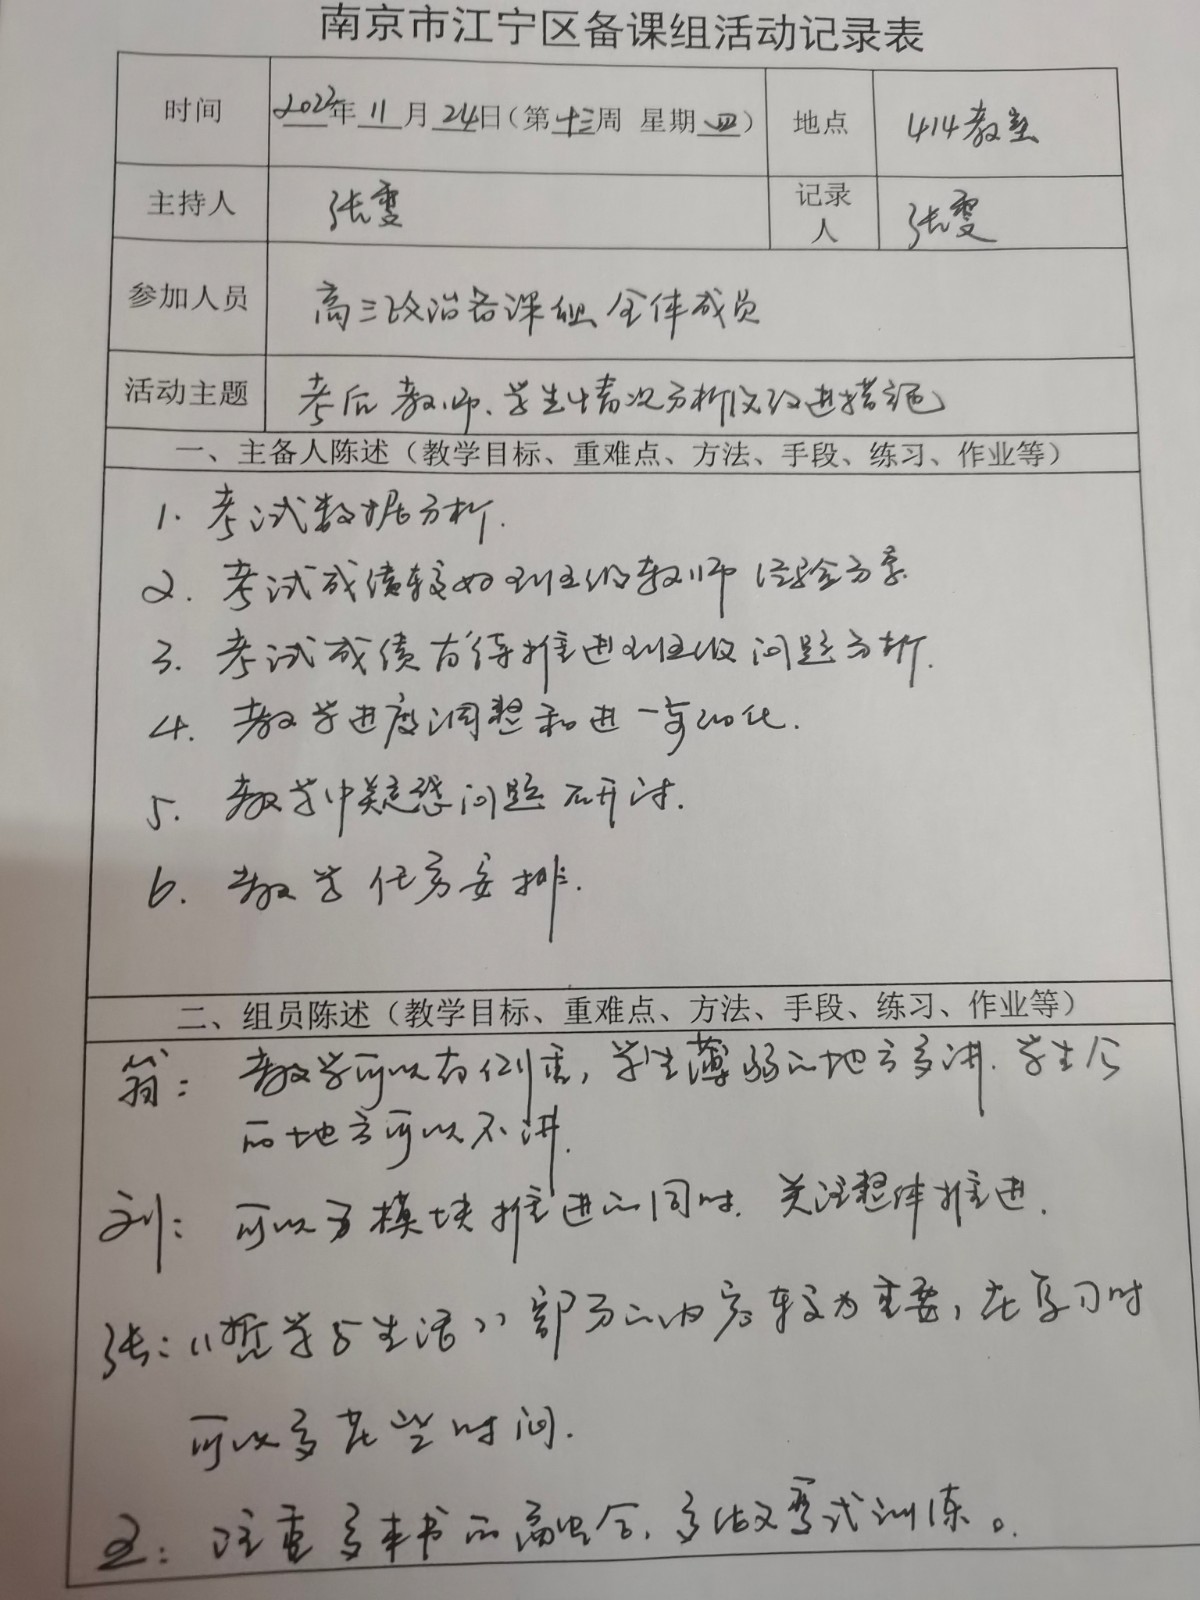 南京市江宁区备课组活动记录表
时间 2022年 11 月 24日（第十三周 星期四） 地点 414教室
主持人 张雯 记录人 张雯
参加人员 高三政治备课组全体成员
活动主题 考后教师、学生情况分析及改进措施
一、主备人陈述（教学目标、重难点、方法、手段、练习、作业等）
1. 考试数据分析.
2. 考试成绩较好班级教师经验分享.
3. 考试成绩有待推进班级问题分析.
4. 教学进度调整和进一步细化.
5. 教学中疑惑问题研讨.
6. 教学任务安排.
二、组员陈述（教学目标、重难点、方法、手段、练习、作业等）
翁： 教学可以有侧重，学生薄弱的地方多讲. 学生会
的地方可以不讲.
刘： 可以分模块推进的同时. 关注整体推进.
张：《哲学与生活》部分的内容较为重要，在复习时
可以多花些时间.
王： 注重多本书的融合，多做变式训练。